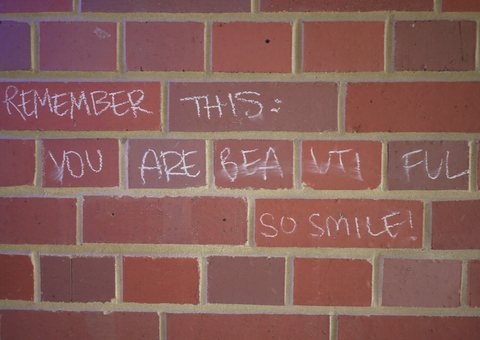 REMEMBER THIS:
YOU ARE BEAUTIFUL
SO SMILE!